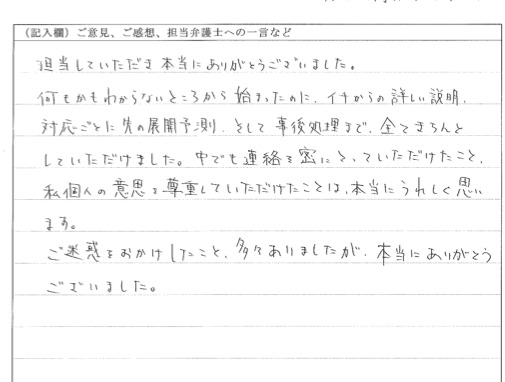 （記入欄）ご意見、ご感想、担当弁護士への一言など
担当していただき本当にありがとうございました。
何もかもわからないところから始まったのに、イチからの詳しい説明、
対応ごとに先の展開予測、そして事後処理まで、全てきちんと
していただけました。中でも連絡を密にとっていただけたこと、
私個人の意思を尊重していただけたことは、本当にうれしく思い
ます。
ご迷惑をおかけしたこと、多々ありましたが、本当にありがとう
ございました。